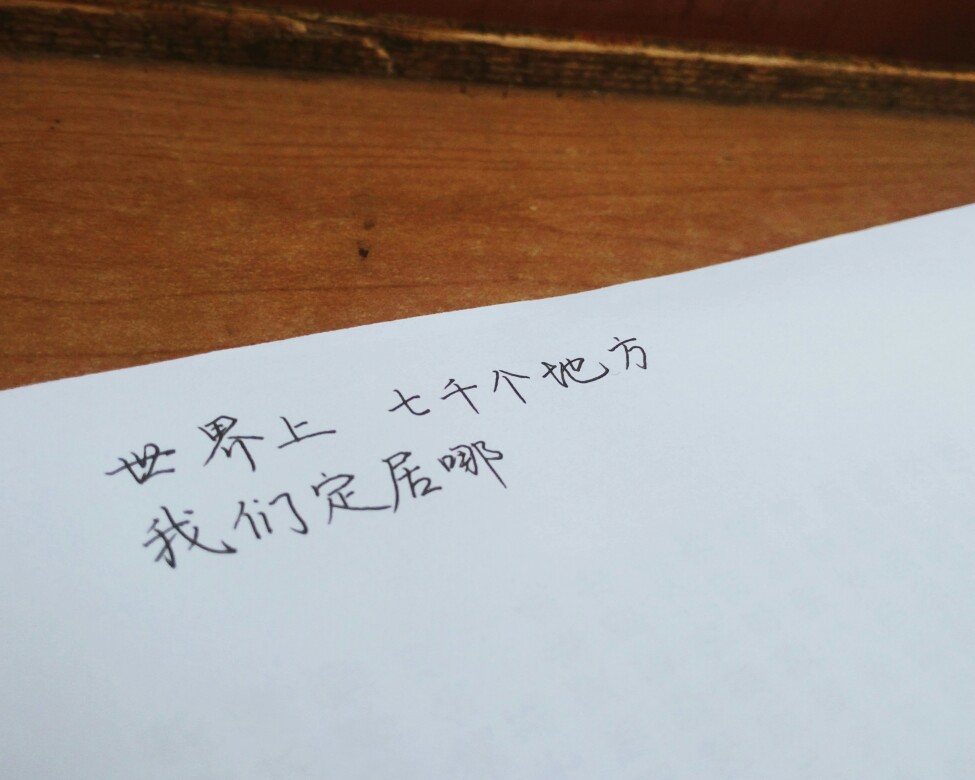 世界上 七千个地方
我们定居哪